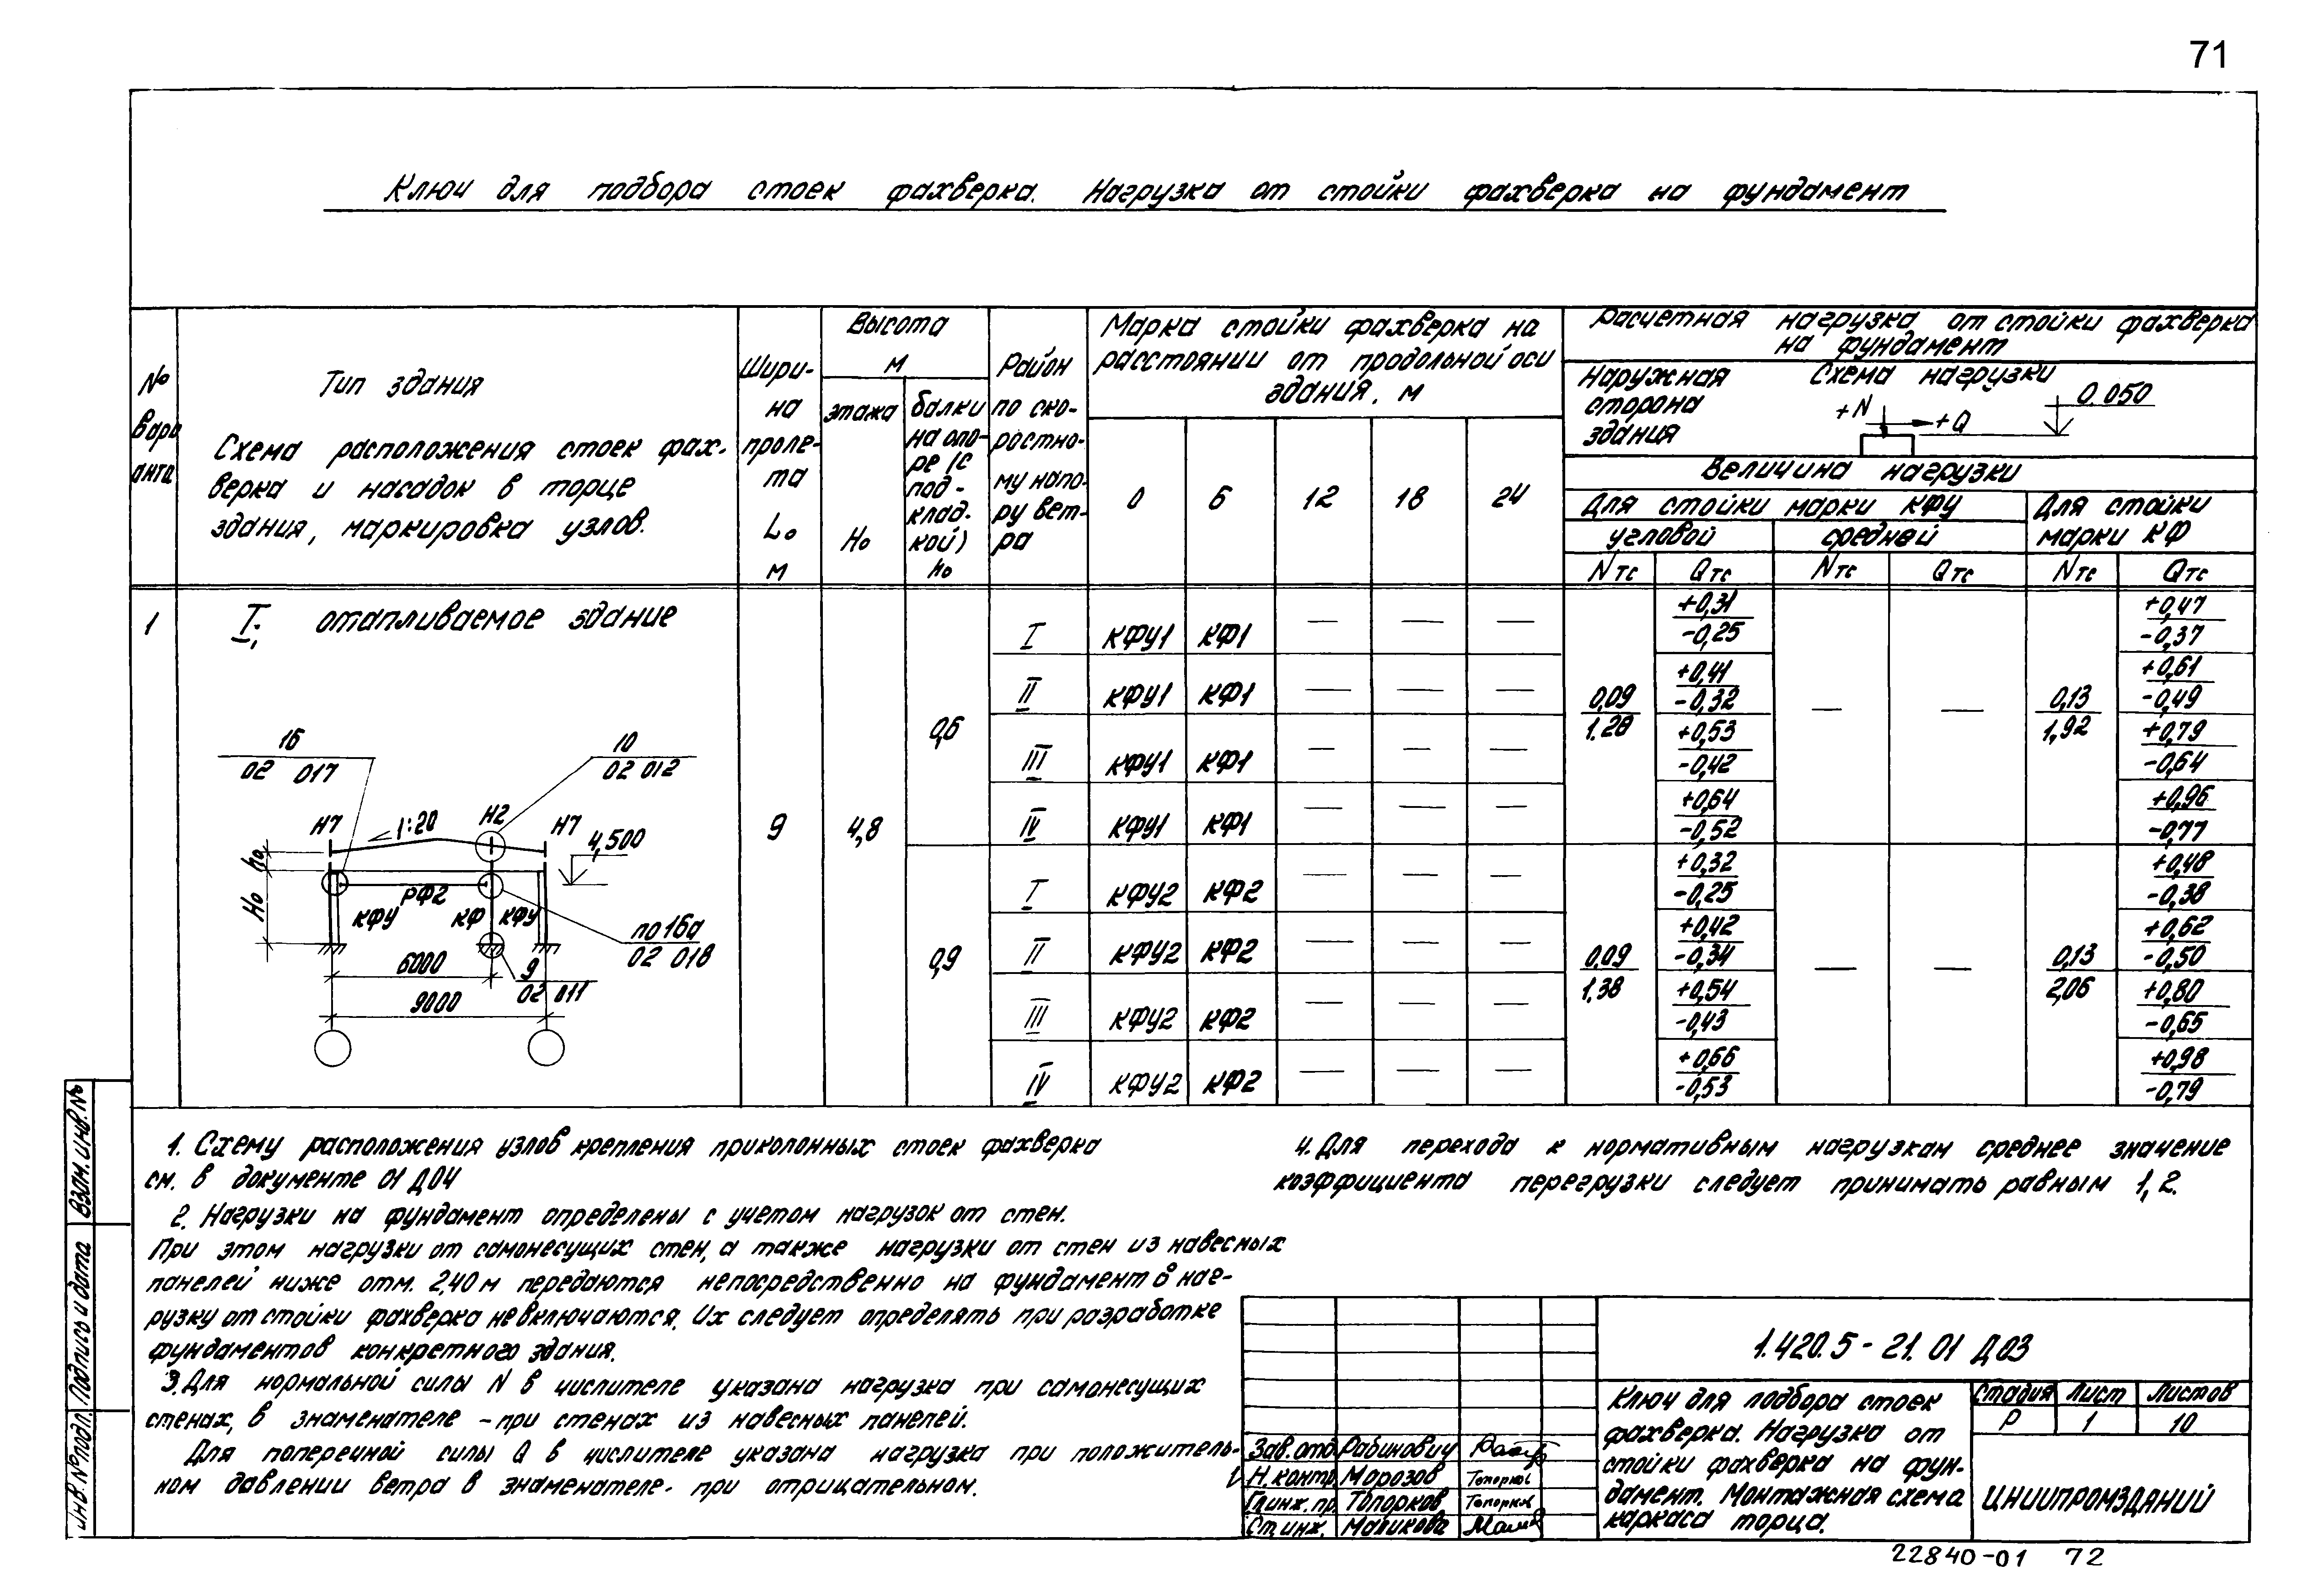 71
Ключ для подбора стоек фахверка. Нагрузка от стойки фахверка на фундамент
№ вари анта
Тип здания
Схема расположения стоек фах-
верка и насадок в торце
здания, маркировка узлов.
Шири-
на
проле-
та
Lо
м
Высота
м
этажа
Но
балки
на опо-
ре (с
под-
клад-
кой)
hо
Район
по ско-
ростно-
му напо-
ру вет-
ра
Марка стойки фахверка на
расстоянии от продольной оси
здания, м
0 6 12 18 24
Расчетная нагрузка от стойки фахверка
на фундамент
Наружная
сторона
здания
Схема нагрузки
+N +Q 0.050
Величина нагрузки
Для стойки марки КФУ
угловой средней
Для стойки
марки КФ
Nтс Qтс Nтс Qтс Nтс Qтс
1 I. отапливаемое здание
16
02 017
10
02 012
Н7 1:20 Н2 Н7
4,500
hо
Но
РФ2
КФУ КФ КФУ
по16а
02 018
6000
9
02 011
9000
9 4,8
0,6
I КФУ1 КФ1 — — — +0,31 -0,25 +0,47 -0,37
II КФУ1 КФ1 — — — 0,09 1.28 +0,41 -0,32 — — 0,13 1,92 +0,61 -0,49
III КФУ1 КФ1 — — — +0,53 -0,42 +0,79 -0,64
IV КФУ1 КФ1 — — — +0,64 -0,52 +0,96 -0,77
0,9
I КФУ2 КФ2 — — — +0,32 -0,25 +0,48 -0,38
II КФУ2 КФ2 — — — 0,09 1.38 +0,42 -0,34 — — 0,13 2,06 +0,62 -0,50
III КФУ2 КФ2 — — — +0,54 -0,43 +0,80 -0,65
IV КФУ2 КФ2 — — — +0,66 -0,53 +0,98 -0,79
1. Схему расположения узлов крепления приколонных стоек фахверка
см. в документе 01 Д04
2. Нагрузки на фундамент определены с учетом нагрузок от стен.
При этом нагрузки от самонесущих стен, а также нагрузки от стен из навесных
панелей ниже отм. 2,40 м передаются непосредственно на фундамент в наг-
рузку от стойки фахверка не включаются. Их следует определять при разработке
фундаментов конкретного здания.
3. Для нормальной силы N в числителе указана нагрузка при самонесущих
стенах, в знаменателе - при стенах из навесных панелей.
Для поперечной силы Q в числителе указана нагрузка при положитель-
ном давлении ветра в знаменателе - при отрицательном.
4. Для перехода к нормативным нагрузкам среднее значение
коэффициента перегрузки следует принимать равным 1,2.
Инв. № подл. Подпись и дата Взам. инв. №
1.420.5-21.01 Д03
Зав. отд. Рабинович
Н. контр. Морозов Топорков
Гл. инж. пр. Топорков Топорков
Ст. инж. Маликова
Ключ для подбора стоек
фахверка. Нагрузка от
стойки фахверка на фун-
дамент. Монтажная схема
каркаса торца.
Стадия Лист Листов
Р 1 10
ЦНИИПРОМЗДАНИЙ
22840-01 72